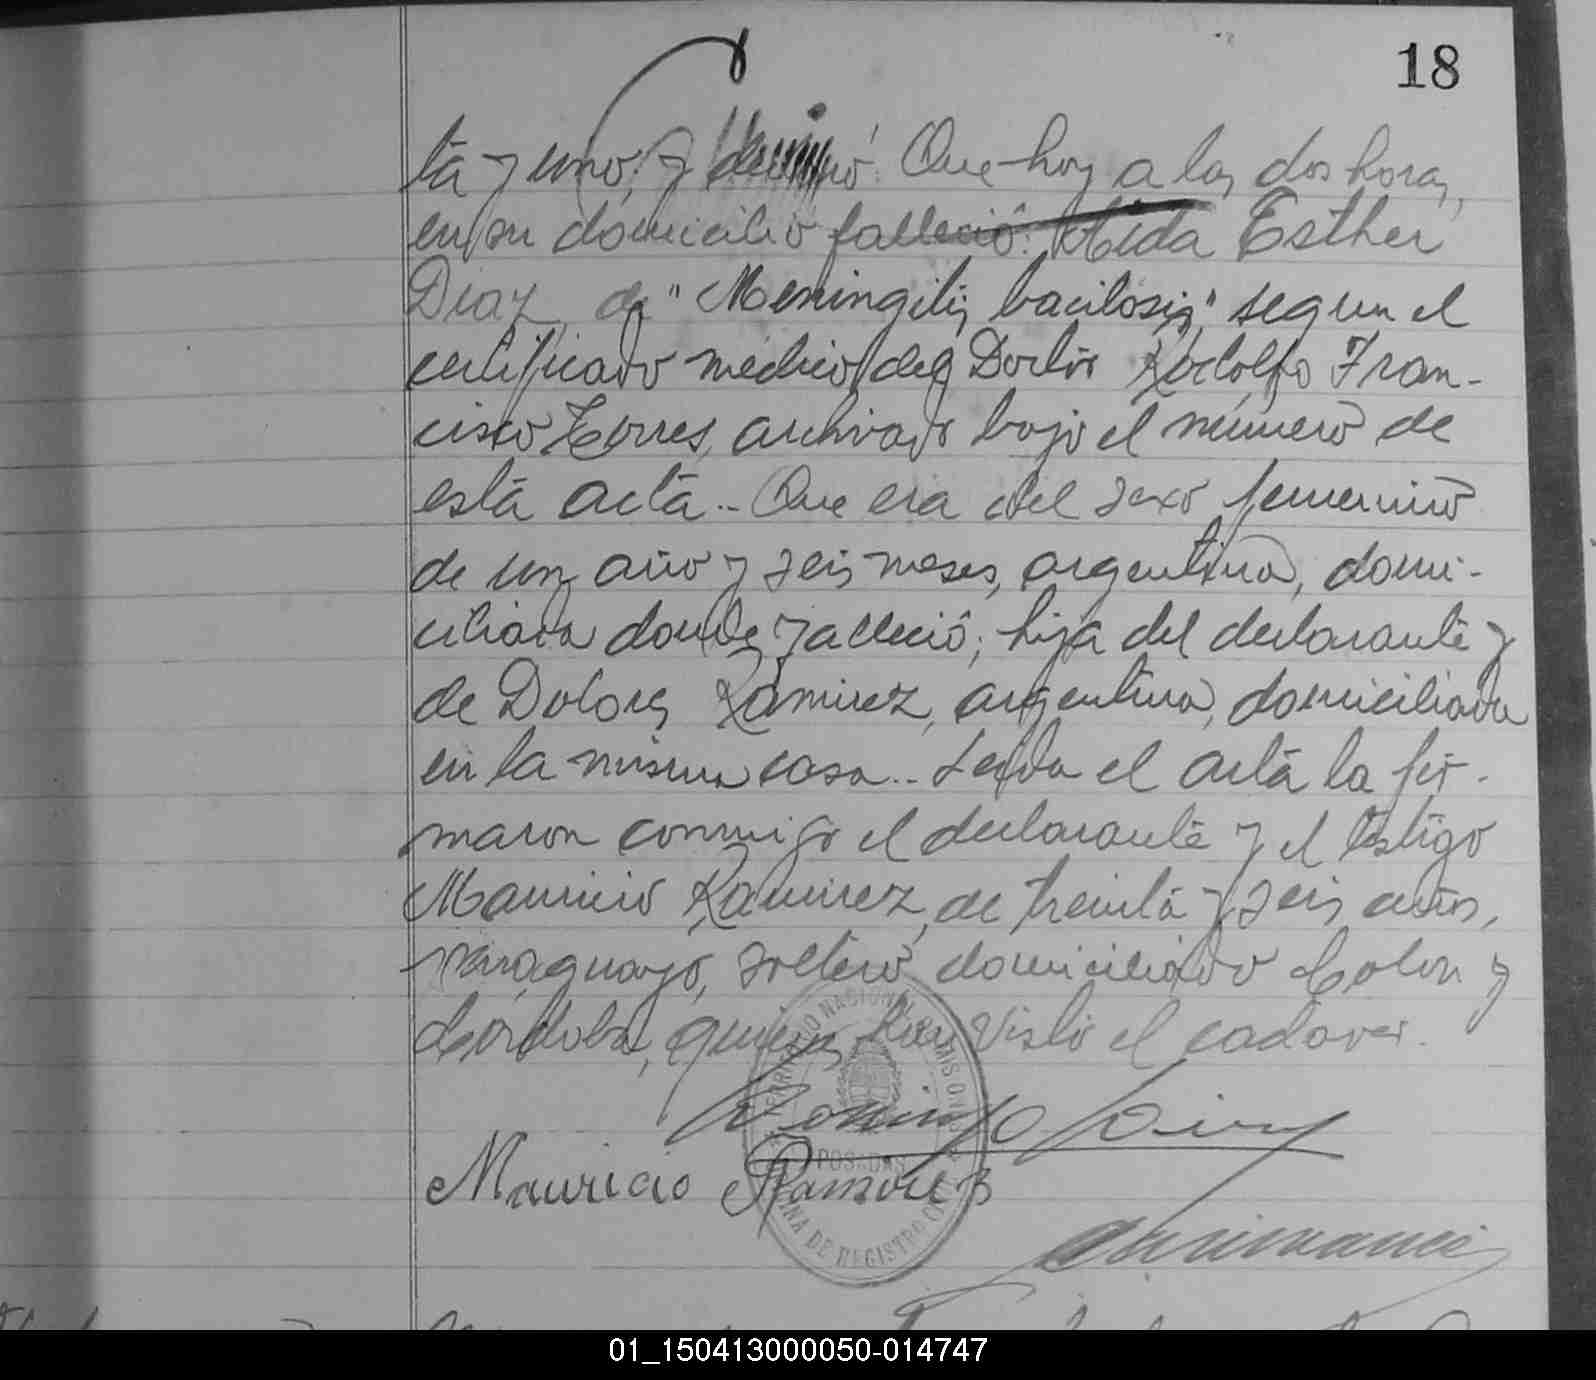 18
ta y uno, y declaró: Que hoy a las dos horas,
en su domicilio falleció: Aida Esther
Diaz, de "Meningitis bacilosis", segun el
certificado médico del Doctor Rodolfo Fran-
cisco Torres, archivado bajo el número de
esta acta.. Que era del sexo femenino
de un año y seis meses, argentina, domi-
ciliada donde falleció; hija del declarante y
de Dolores Ramirez, argentina, domiciliada
en la misma casa.. Leida el acta la fir-
maron conmigo el declarante y el testigo
Mauricio Ramirez, de treinta y seis años,
paraguayo, soltero, domiciliado Colon y
Córdoba, quienes han visto el cadaver.
Mauricio Ramires
TERRITORIO NACIONAL DE MISIONES
POSADAS
OFICINA DE REGISTRO CIVIL
01_150413000050-014747